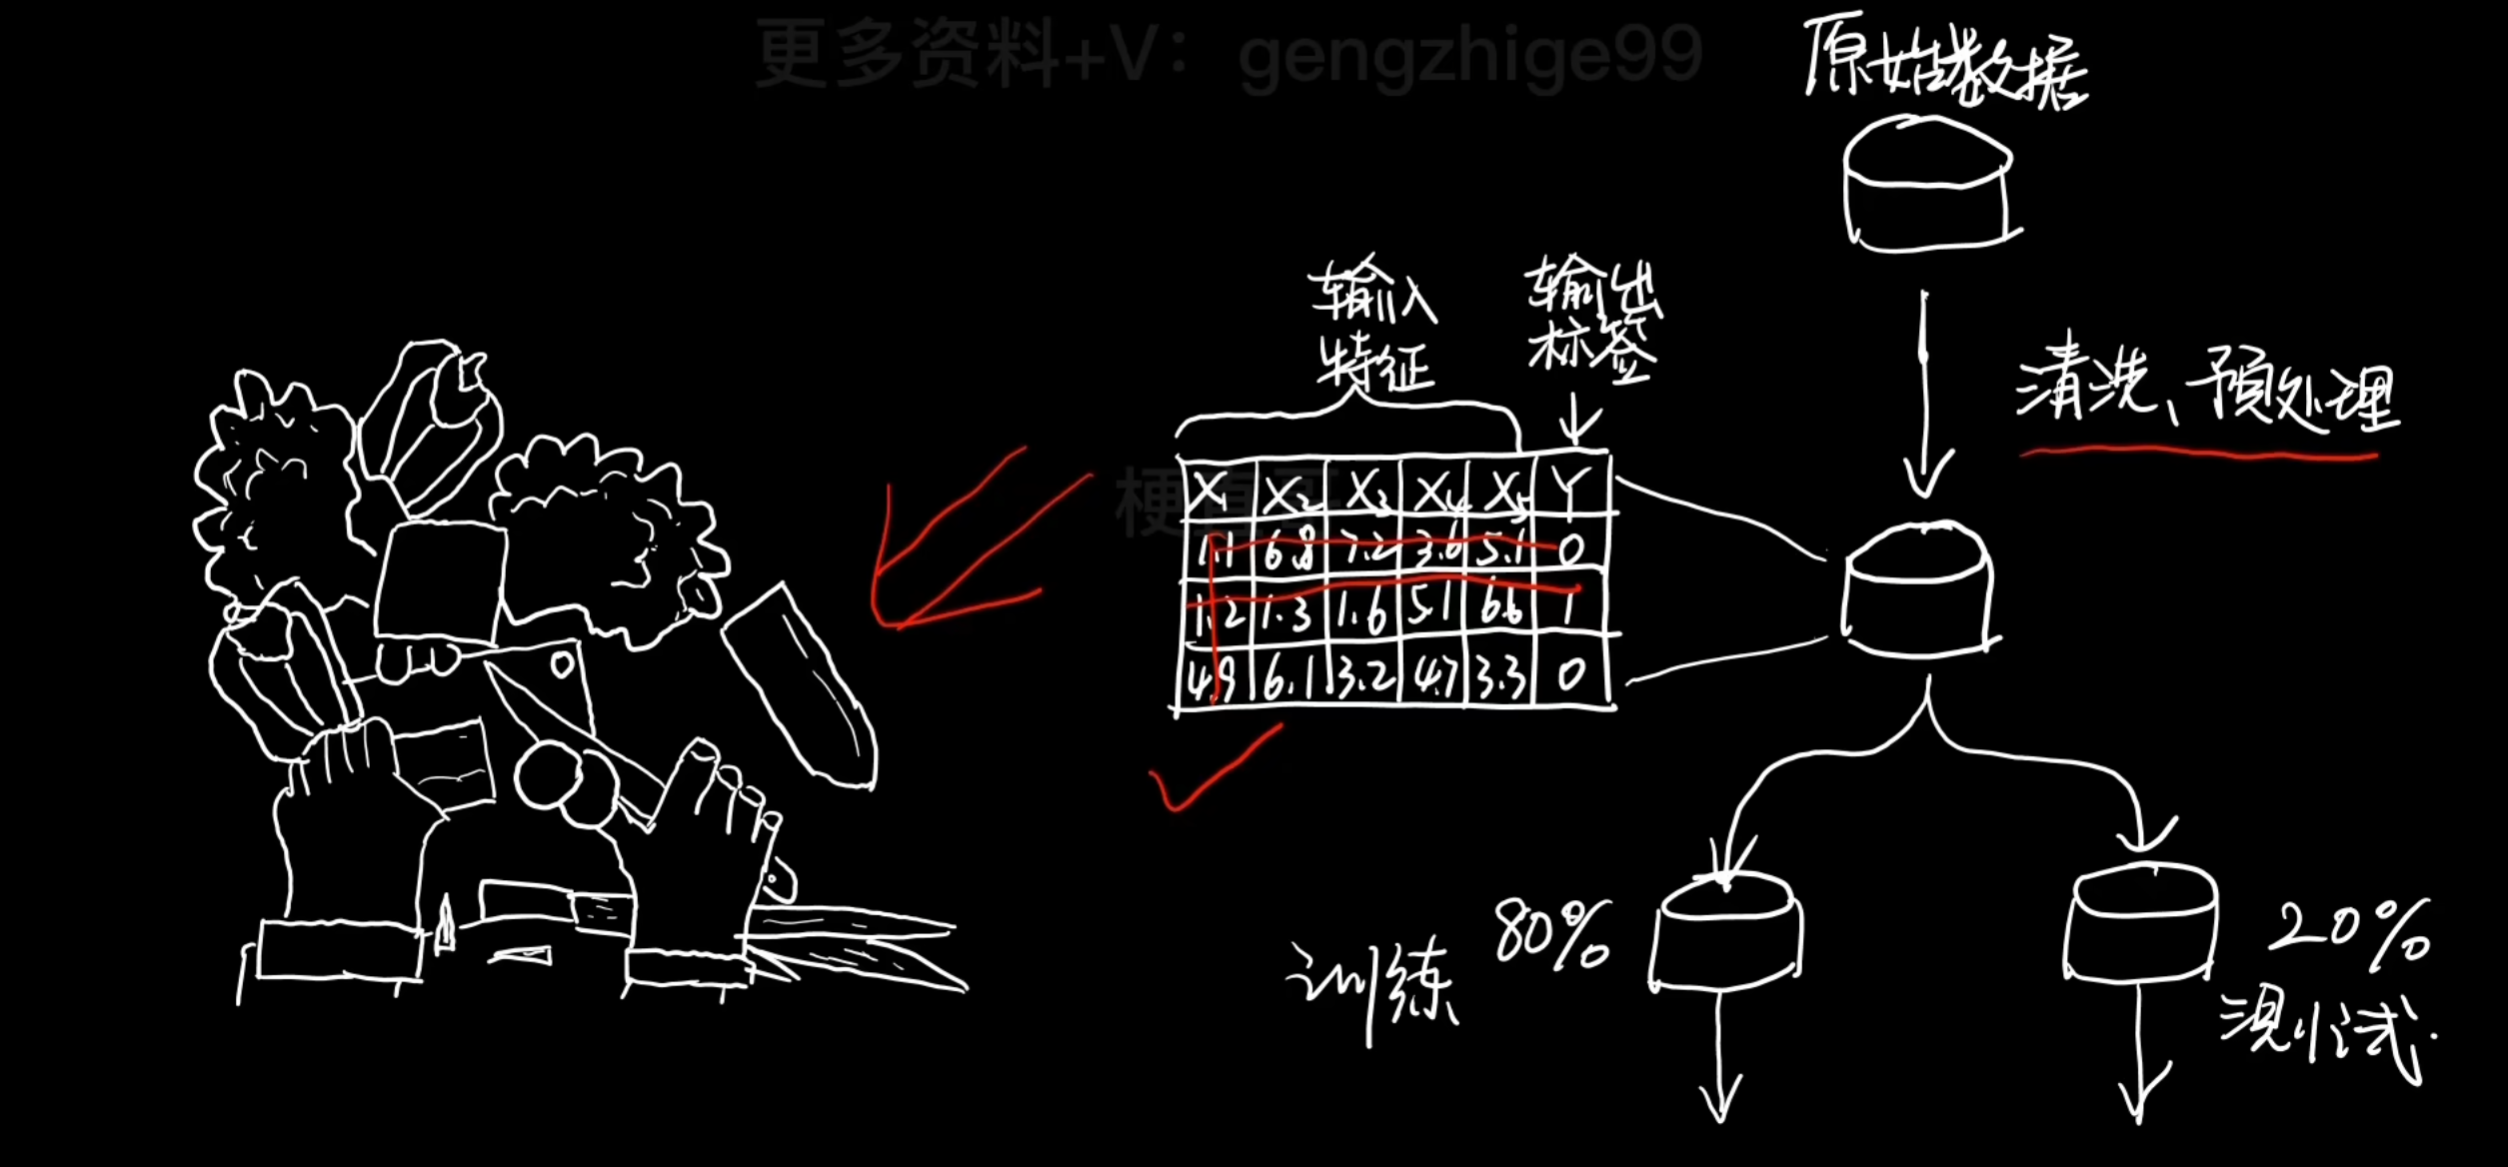 更多资料+V：gengzhige99
原始数据
清洗、预处理
输入
特征
输出
标签
梗直哥
X1 X2 X3 X4 X5 Y
1.1 6.8 7.2 3.6 5.1 0
1.2 1.3 1.6 5.1 6.6 1
4.9 6.1 3.2 4.7 3.3 0
80%
训练
20%
测试.